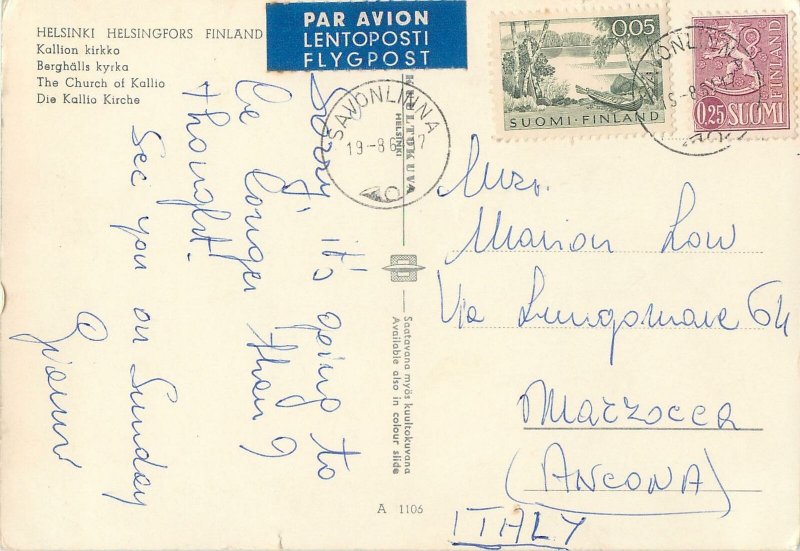 HELSINKI HELSINGFORS FINLAND
Kallion kirkko
Berghälls kyrka
The Church of Kallio
Die Kallio Kirche
PAR AVION
LENTOPOSTI
FLYGPOST
0.05
SUOMI-FINLAND
FINLAND
0,25 SUOMI
SAVONLINNA
19-8 6
SAVONLINNA
HELSINKI
Sorry, it's going to
be longer than I
thought!
See you on Sunday
Gianni
Mrs.
Marion Low
Via Lungomare 64
Marzocca
(ANCONA)
ITALY
Saatavana myös kuultokuvana
Available also in colour slide
A 1106